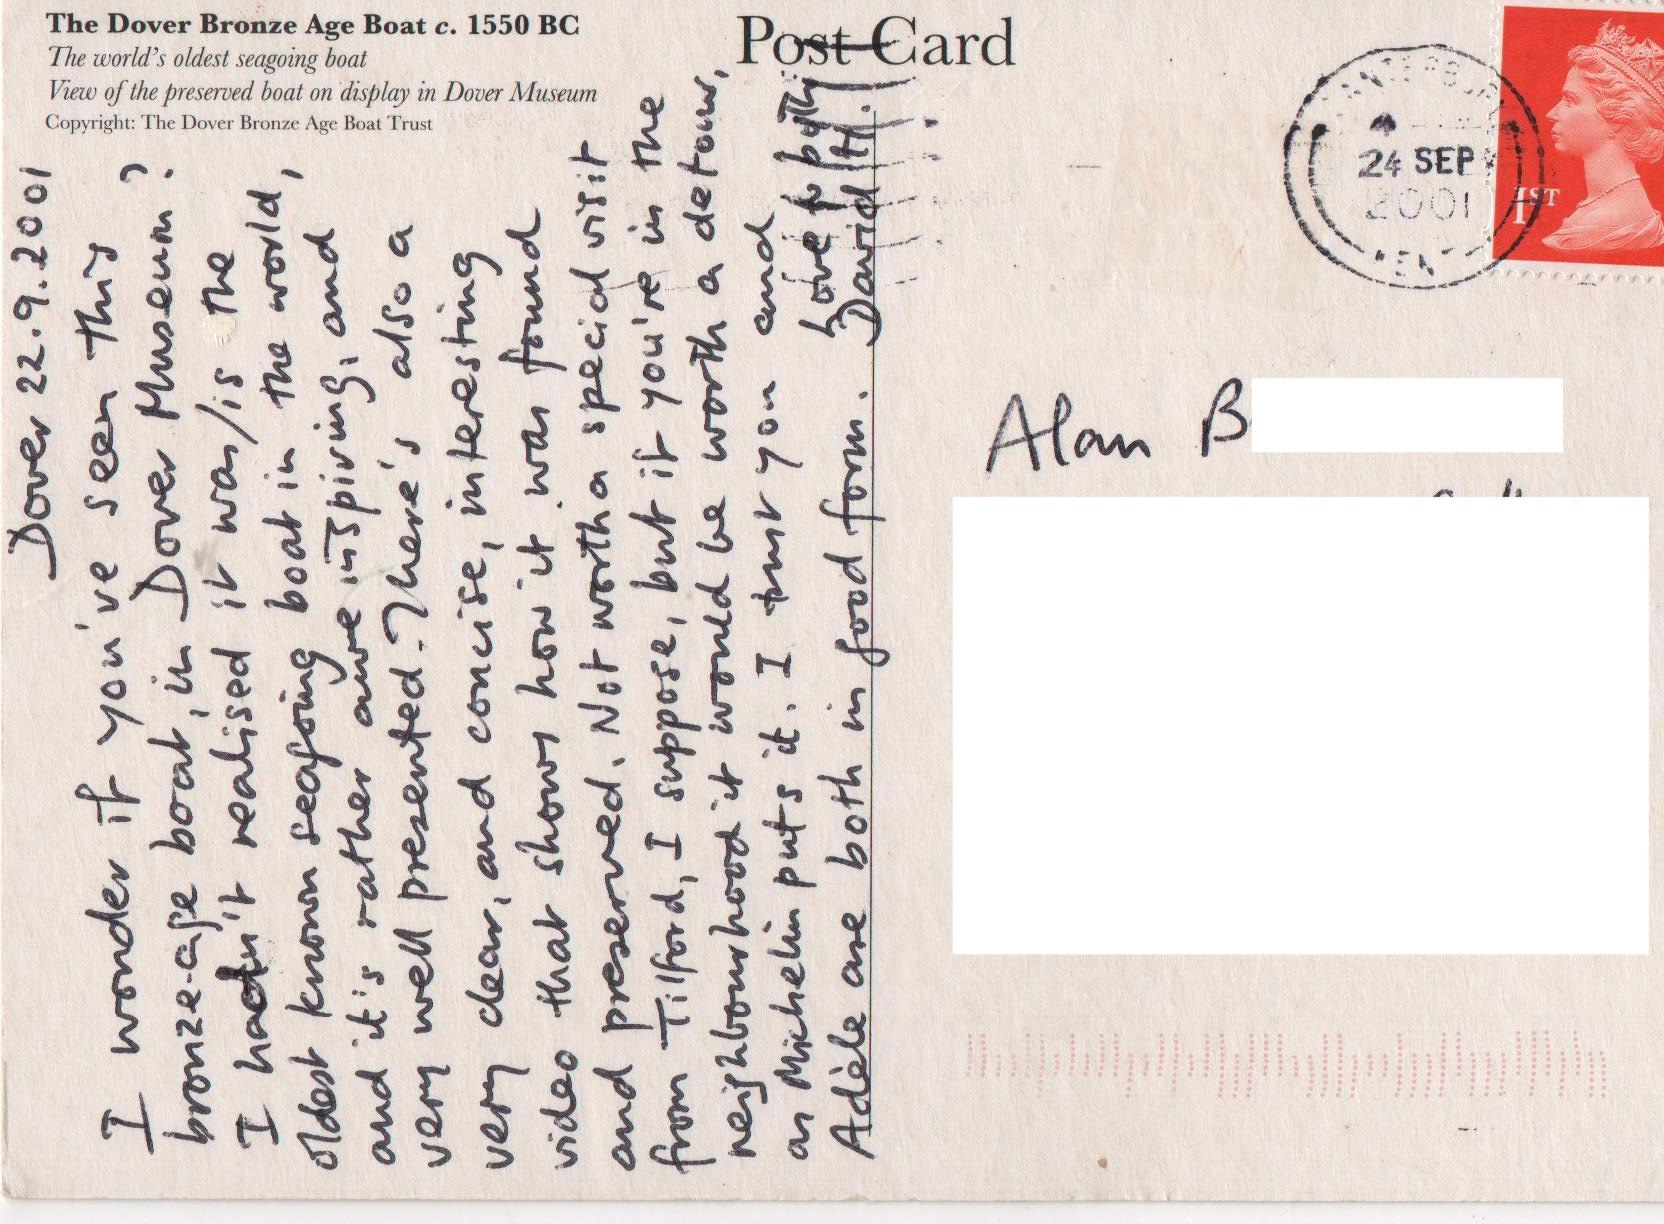 The Dover Bronze Age Boat c. 1550 BC
The world's oldest seagoing boat
View of the preserved boat on display in Dover Museum
Copyright: The Dover Bronze Age Boat Trust
Post Card
CANTERBURY
24 SEP
2001
KENT
1ST
Dover 22.9.2001
I wonder if you've seen this
bronze-age boat, in Dover Museum?
I hadn't realised it was/is the
oldest known seagoing boat in the world,
and it's rather awe inspiring, and
very well presented. There's also a
very clear, and concise, interesting
video that shows how it was found
and preserved. Not worth a special visit
from Tilford, I suppose, but if you're in the
neighbourhood it would be worth a detour,
as Michelin puts it. I trust you and
Adèle are both in good form. Love to both,
David H.
Alan B